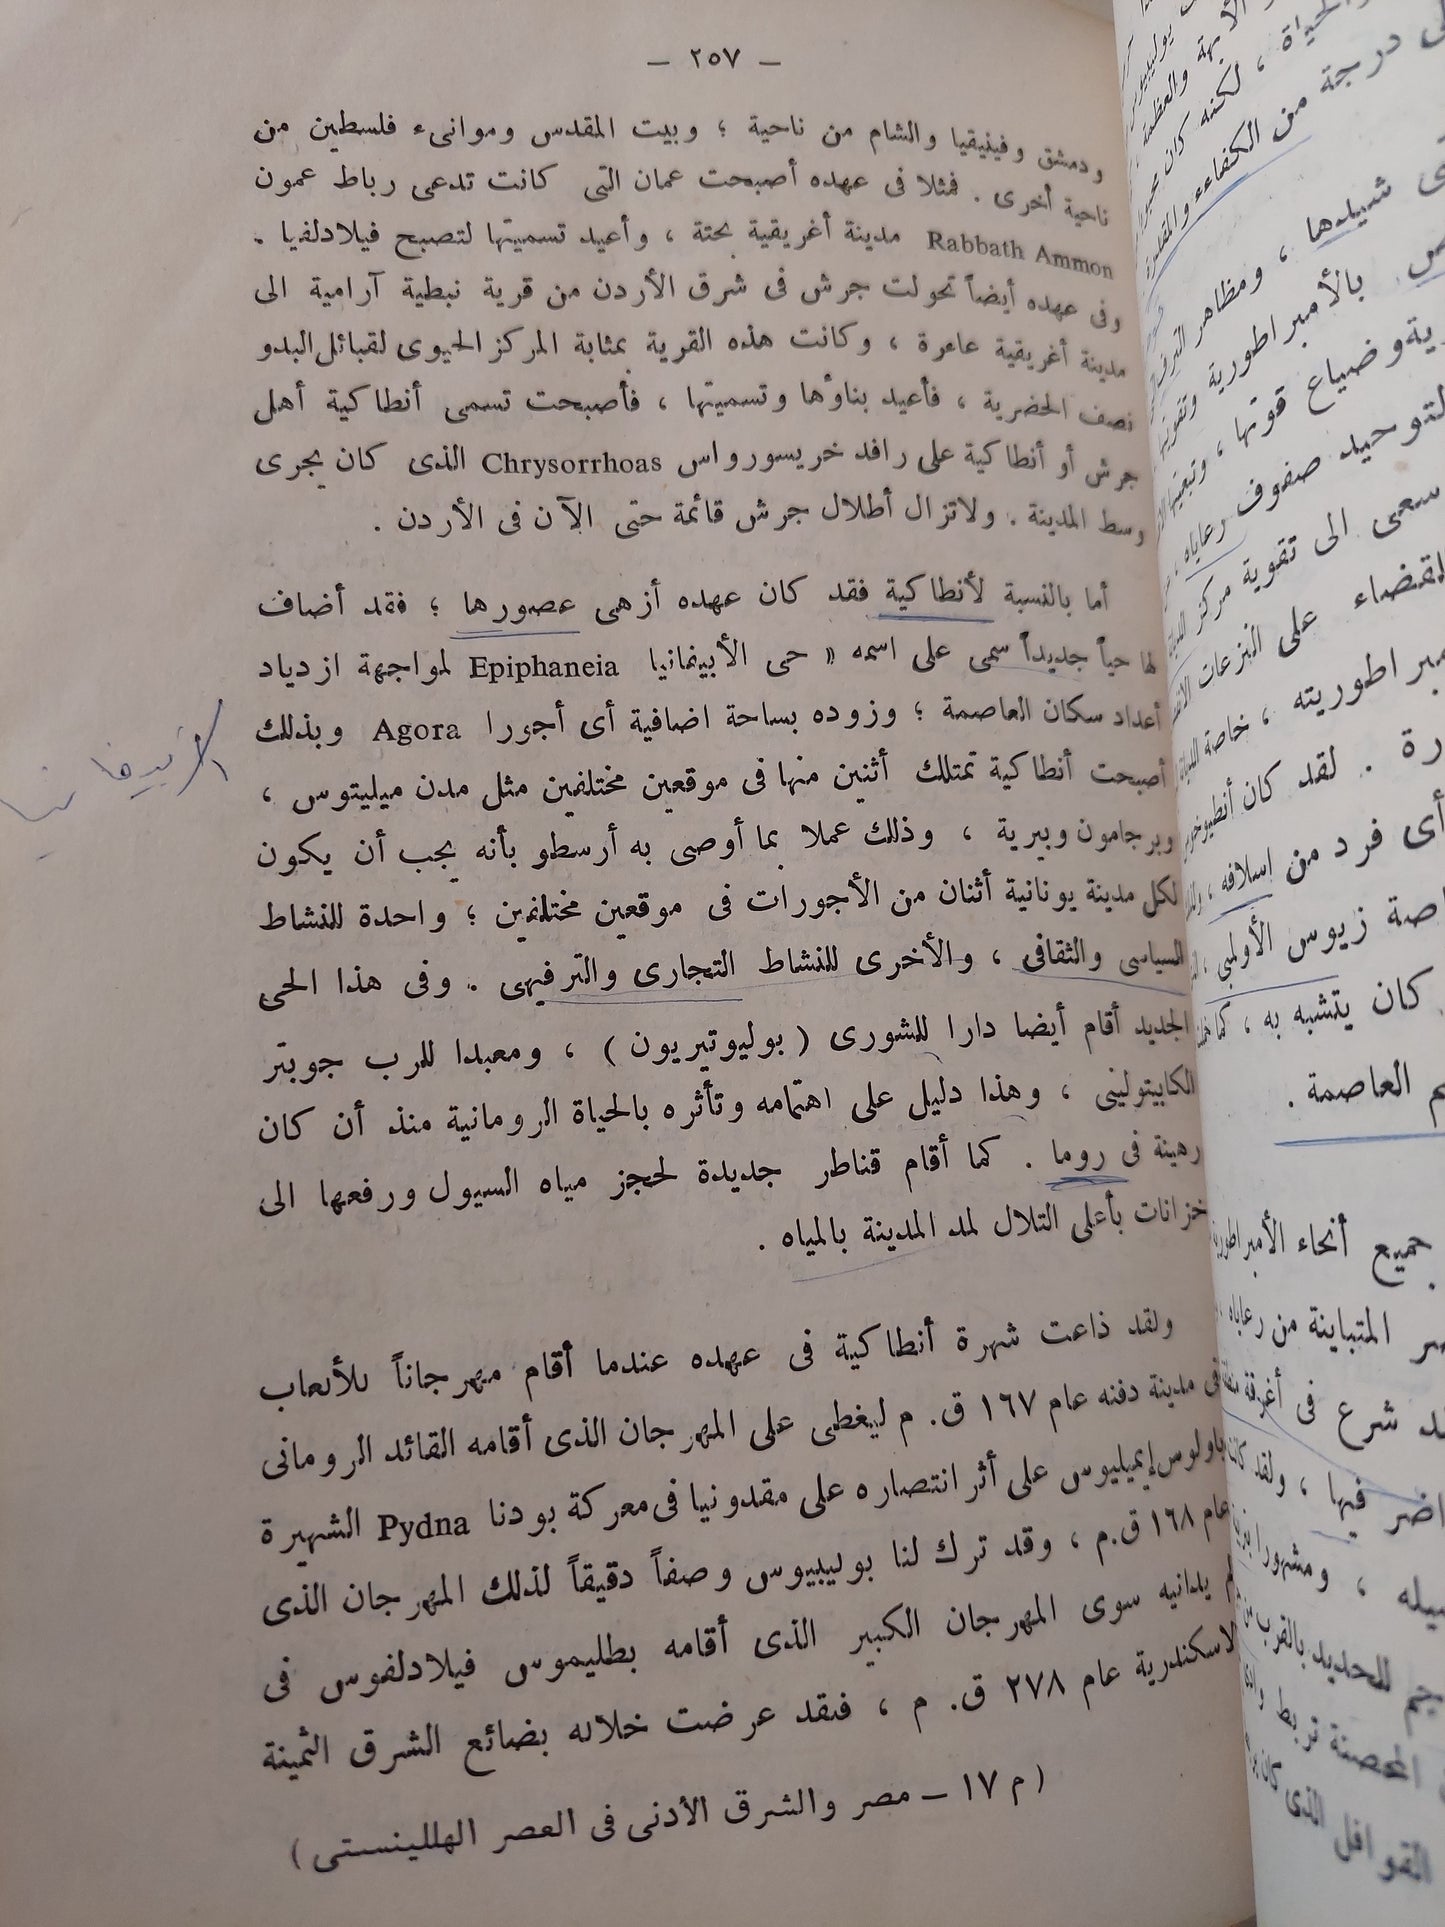 — ٢٥٧ —
ودمشق وفينيقيا والشام من ناحية ؛ وبيت المقدس وموانىء فلسطين من
ناحية أخرى . فمثلا فى عهده أصبحت عمان التى كانت تدعى رباط عمون
Rabbath Ammon مدينة أغريقية بحتة ، وأعيد تسميتها لتصبح فيلادلفيا .
وفى عهده أيضاً تحولت جرش فى شرق الأردن من قرية نبطية آرامية الى
مدينة أغريقية عامرة ، وكانت هذه القرية بمثابة المركز الحيوى لقبائل البدو
نصف الحضرية ، فأعيد بناؤها وتسميتها ، فأصبحت تسمى أنطاكية أهل
جرش أو أنطاكية على رافد خريسورواس Chrysorrhoas الذى كان يجرى
وسط المدينة . ولاتزال أطلال جرش قائمة حتى الآن فى الأردن .
أما بالنسبة لأنطاكية فقد كان عهده أزهى عصورها ؛ فقد أضاف
لها حياً جديداً سمى على اسمه « حى الأبيفانيا Epiphaneia لمواجهة ازدياد
أعداد سكان العاصمة ؛ وزوده بساحة اضافية أى أجورا Agora وبذلك
أصبحت أنطاكية تمتلك أثنين منها فى موقعين مختلفين مثل مدن ميليتوس ،
وبرجامون وبيرية ، وذلك عملا بما أوصى به أرسطو بأنه يجب أن يكون
لكل مدينة يونانية أثنان من الأجورات فى موقعين مختلفين ؛ واحدة للنشاط
السياسى والثقافى ، والأخرى للنشاط التجارى والترفيهى . وفى هذا الحى
الجديد أقام أيضا دارا للشورى ( بوليوتيريون ) ، ومعبدا للرب جوبتر
الكابيتولينى ، وهذا دليل على اهتمامه وتأثره بالحياة الرومانية منذ أن كان
رهينة فى روما . كما أقام قناطر جديدة لحجز مياه السيول ورفعها الى
خزانات بأعلى التلال لمد المدينة بالمياه .
ولقد ذاعت شهرة أنطاكية فى عهده عندما أقام مهرجاناً للألعاب
فى مدينة دفنه عام ١٦٧ ق. م ليغطى على المهرجان الذى أقامه القائد الرومانى
باولوس إيميليوس على أثر انتصاره على مقدونيا فى معركة بودنا Pydna الشهيرة
عام ١٦٨ ق.م ، وقد ترك لنا بوليبيوس وصفاً دقيقاً لذلك المهرجان الذى
لم يدانيه سوى المهرجان الكبير الذى أقامه بطليموس فيلادلفوس فى
الاسكندرية عام ٢٧٨ ق. م ، فقد عرضت خلاله بضائع الشرق الثمينة
( م ١٧ — مصر والشرق الأدنى فى العصر الهللينستى )
والحياة ، لكنه كان
درجة من الكفاءه والمقدرة
شيدها ، ومظاهر الترف
بالأمبراطورية
وضياع قوتها ،
لتوحيد صفوف رعاياه
سعى الى تقوية مركز
لقضاء على النزعات
مبراطوريته ، خاصة
رة . لقد كان أنطيوخوس
أى فرد من اسلافه ،
صة زيوس الأولمبى ،
كان يتشبه به ، كما
م العاصمة .
جميع أنحاء الأمبراطورية
المتباينة من رعاياه
شرع فى أغرقة
فيها ، ولقد كانت
، ومشهورا
للحديد بالقرب من
المحصنة تربط
القوافل الذى كان